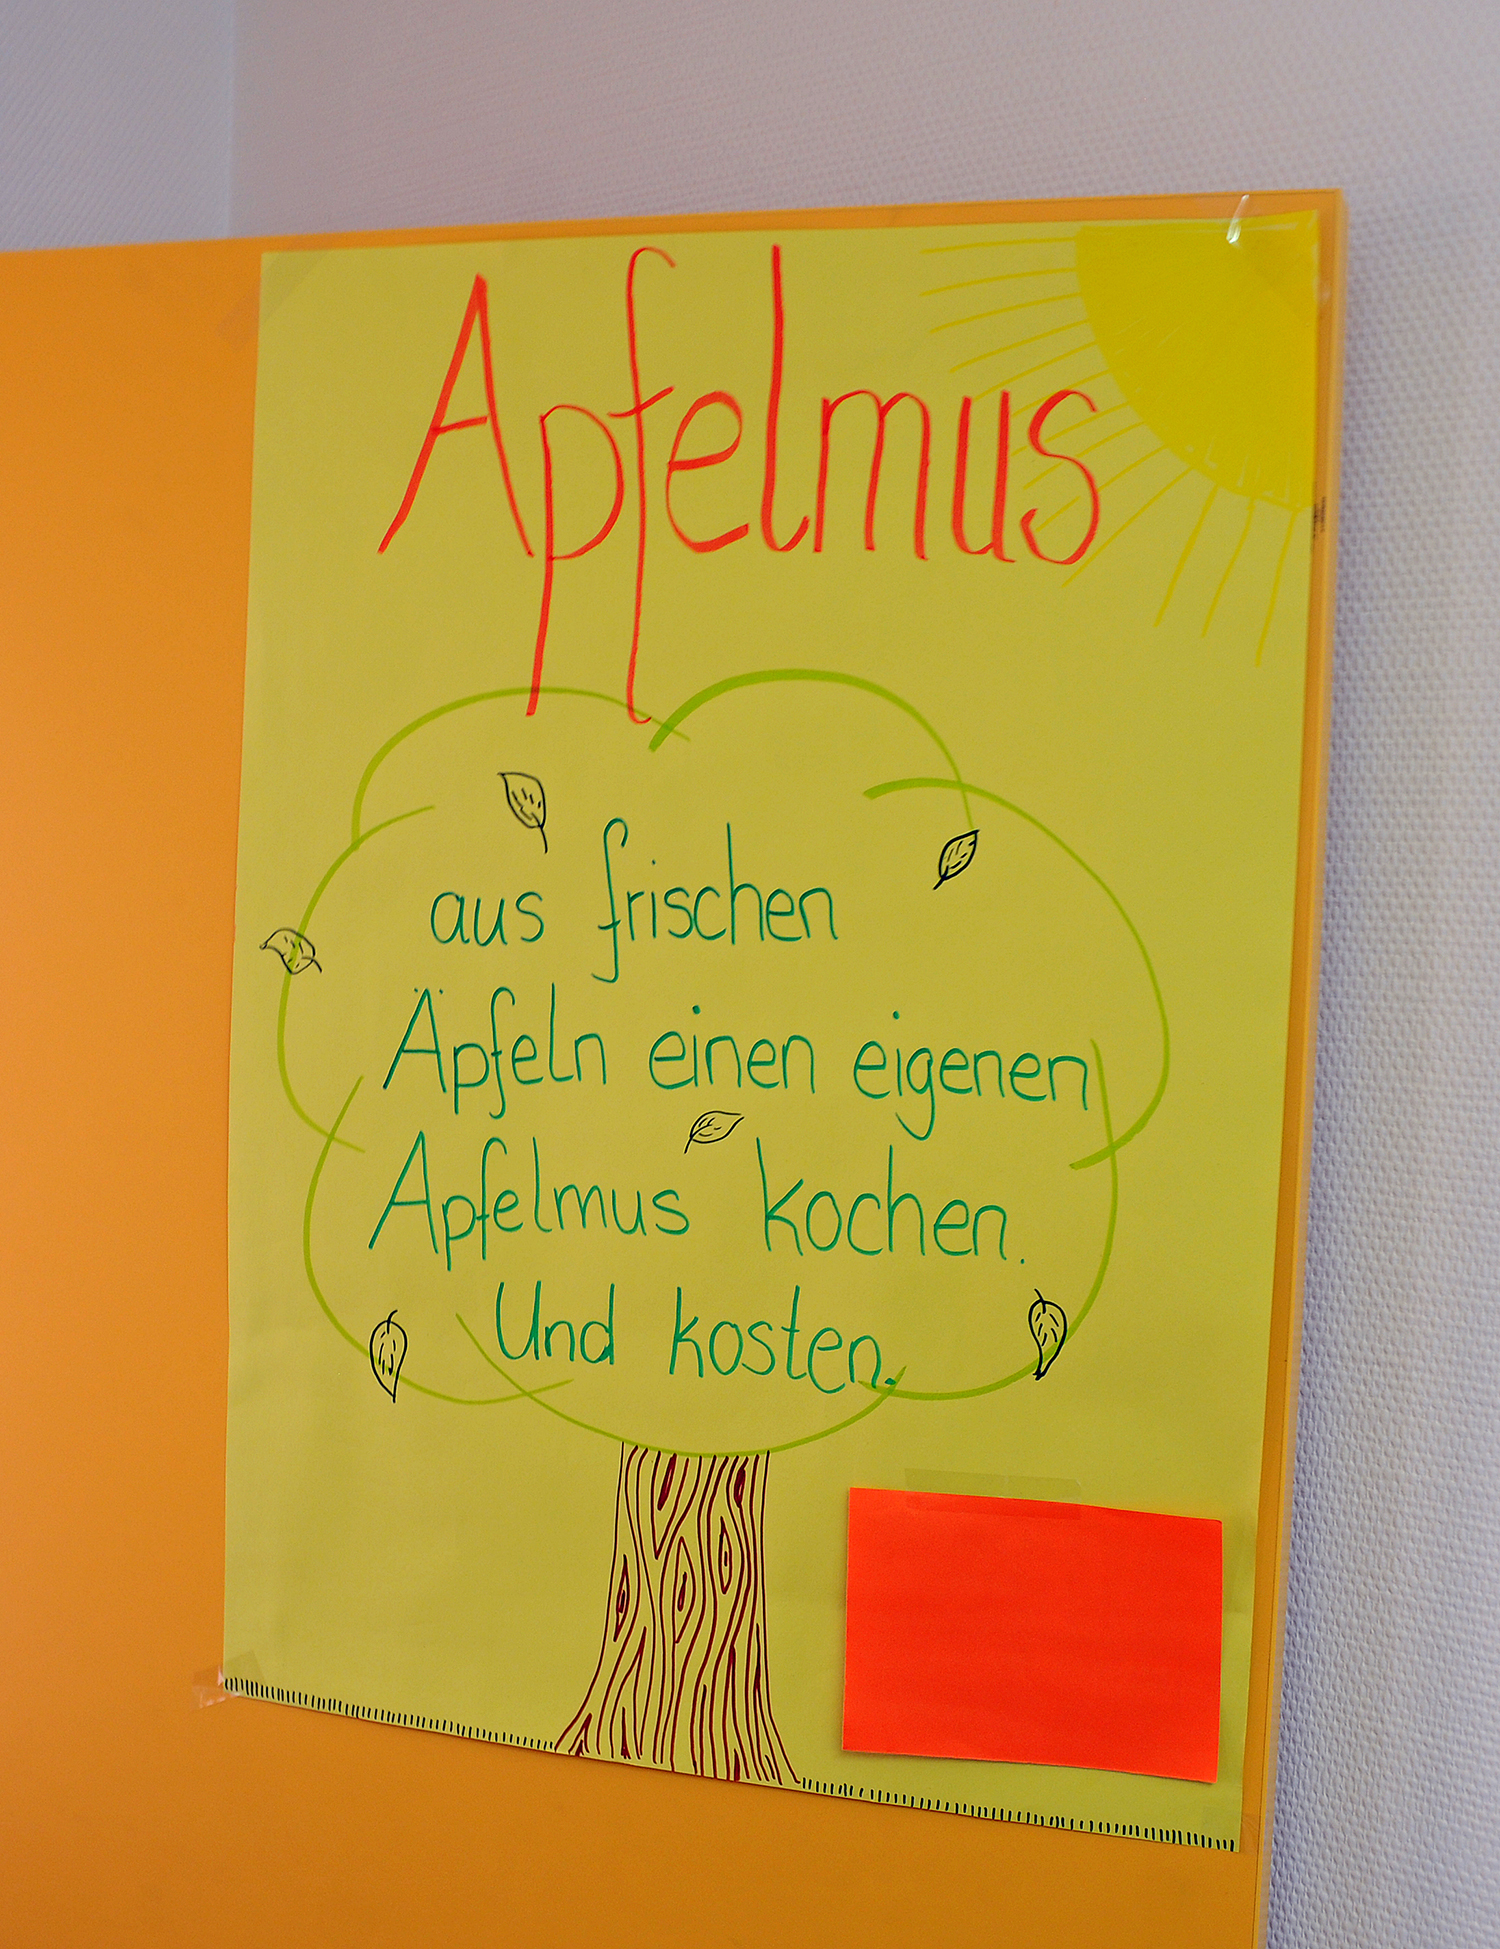 Apfelmus
aus frischen
Äpfeln einen eigenen
Apfelmus kochen.
Und kosten.